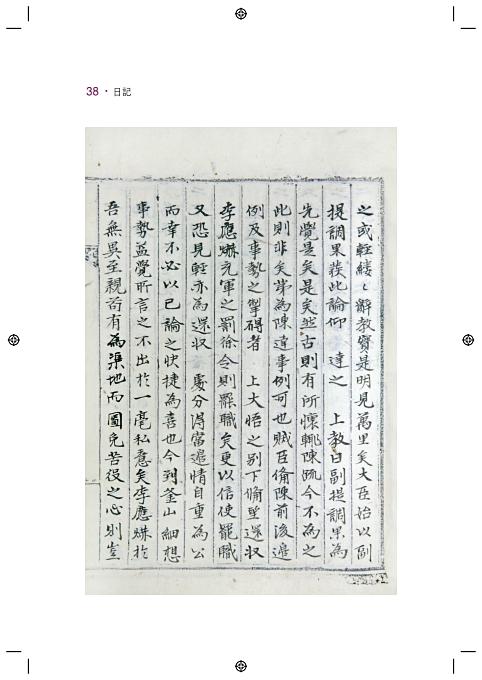 38 · 日記
之或輕縷〻辭教實是明見萬里矣大臣始以副
提調果蒙此論仰 達之 上教曰副提調果為
先覺是矣是矣然古則有所懷輒陳疏今不為之
此則非矣第為陳達事例可也賊臣脩陳前後邊
例及事勢之掣碍者 上大悟之別下脩堅還收
李應爀充軍之罰徐令則罷職矣更以信使罷職
又恐見輕亦為還收 處分得當邊情自重為公
而幸不必以已論之快捷為喜也今到釜山細想
事勢益覺所言之不出於一毫私意矣李應爀於
吾無異至親苟有為渠地而圖免苦役之心則豈